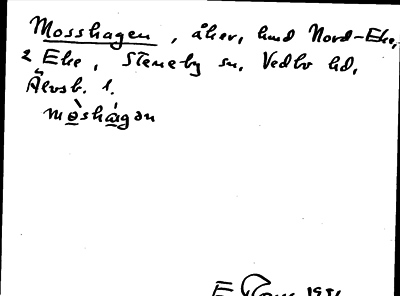 Mosshagen, åker, hmd Nord-Ehe,
2 Ehe, Steneby sn, Vedbo hd,
Älvsb. l.
mòshágən
E